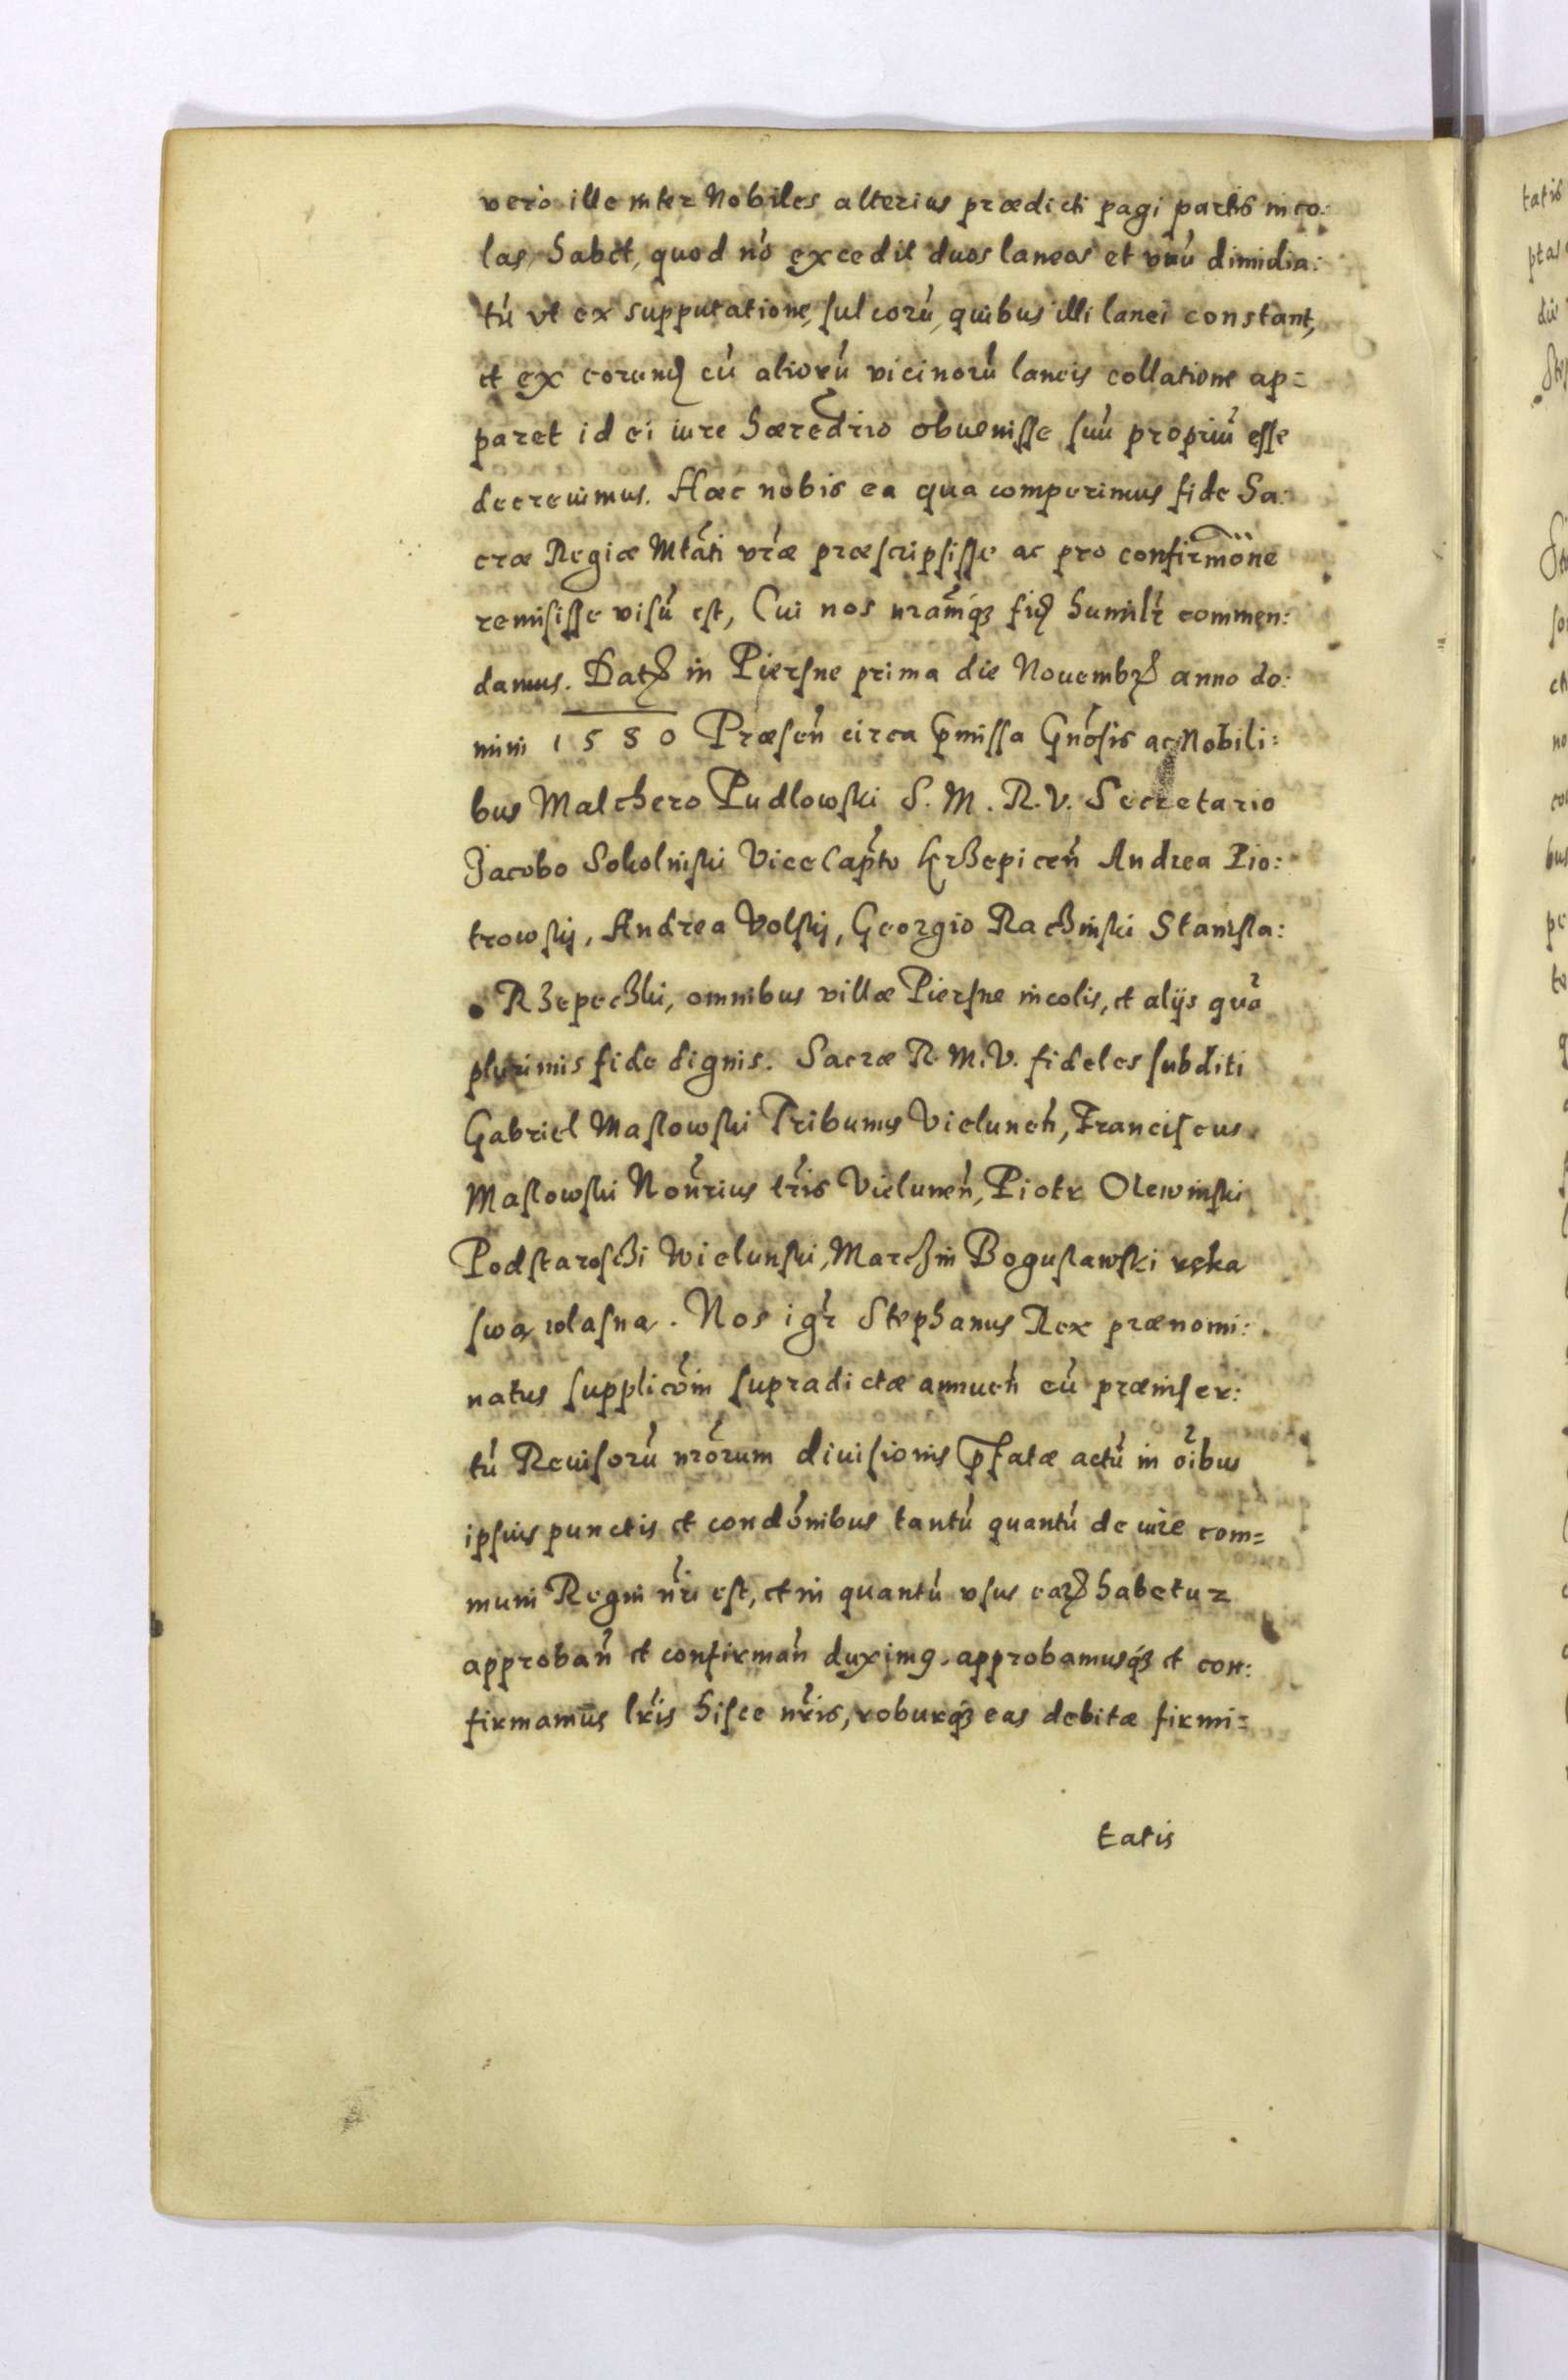 verò ille inter Nobiles alterius prædicti pagi partis inco:
las, habet, quod nō excedit duos laneos et vnū dimidia:
tū vt ex supputatione, sulcorū, quibus illi lanei constant,
et ex eorund cū aliorū vicinorū laneis collatione ap=
paret id ei iure hæredrio obuenisse suū propriū esse
decreuimus. Hæc nobis ea qua comperimus fide Sa:
cræ Regiæ Mtāti vræ præscripsisse ac pro confirmōne
remisisse visū est, Cui nos nramq3 fid humilr commen:
damus. Dat in Piersne prima die Nouembr anno do:
mini 1580 Præsen circa pmissa Gnosis ac Nobili:
bus Malchero Pudlowski S. M. R. V. Secretario
Jacobo Sokolniski ViceCapto Krzepicen Andrea Pio:
trowskij, Andrea Volskij, Georgio Raczinski Stanisla:
Rzepeczki, omnibus villæ Piersne incolis, et alijs quā
plurimis fide dignis. Sacræ R. M. V. fideles subditi
Gabriel Maslowski Tribunus Vielunen, Franciscus
Maslowski Nourius tris Vielunen, Piotr Olewinski
Podstarosczi Wielunski, Marczin Boguslawski ręka
swą wlasną. Nos igr Stephanus Rex prænomi:
natus supplicōni supradictæ annuen cū præinser:
tū Reuisorū nrorum diuisionis pfatæ actū in oibus
ipsius punctis et condōnibus tantū quantū de iure com=
muni Regni nri est, et in quantū vsus ear habetur
approban et confirman duxim9. approbamusq3 et con:
firmamus lris hisce nris, roburq3 eas debitæ firmi=
tatis
tatis
ptas
die